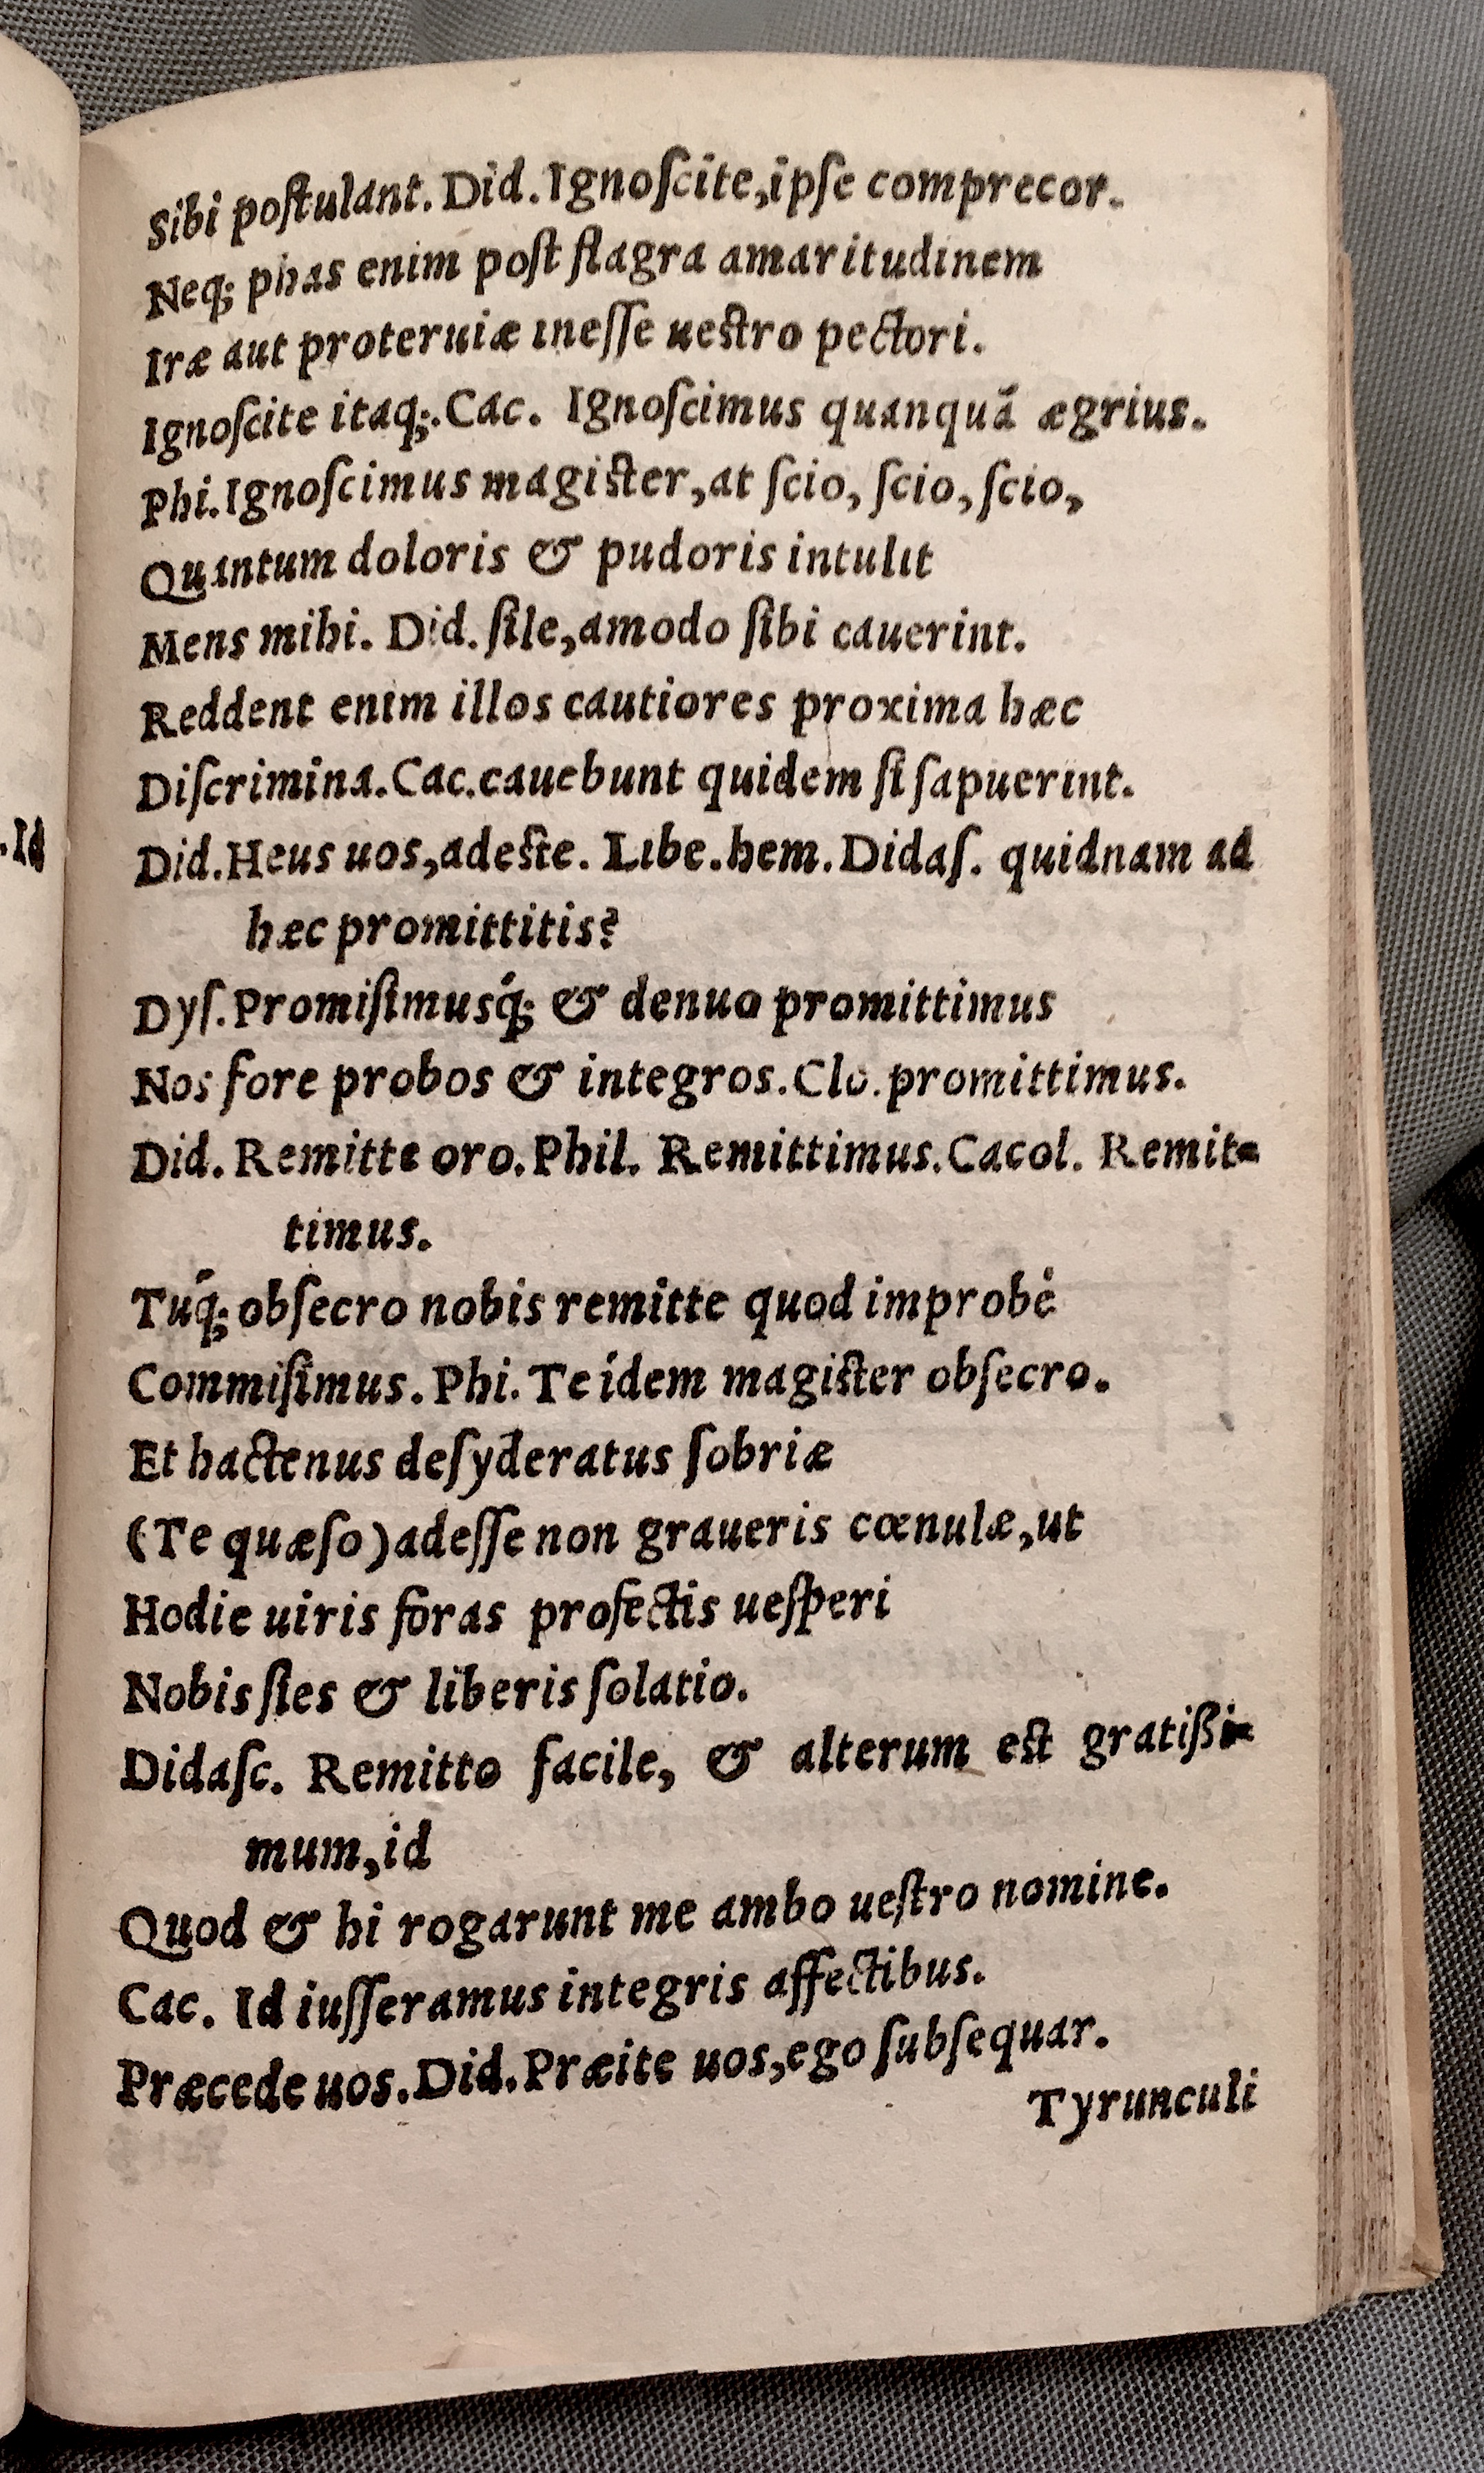 Sibi poſtulant. Did. Ignoſcite, ipſe comprecor.
Neq; phas enim poſt flagra amaritudinem
Iræ aut proteruiæ ineſſe ueſtro pectori.
Ignoſcite itaq;. Cac. Ignoſcimus quanquã ægrius.
Phi. Ignoſcimus magiſter, at ſcio, ſcio, ſcio,
Quantum doloris & pudoris intulit
Mens mihi. Did. ſile, amodo ſibi cauerint.
Reddent enim illos cautiores proxima hæc
Diſcrimina. Cac. cauebunt quidem ſi ſapuerint.
.Id
Did. Heus uos, adeſte. Libe. hem. Didaſ. quidnam ad
hæc promittitis?
Dyſ. Promiſimusq́; & denuo promittimus
Nos fore probos & integros. Clo. promittimus.
Did. Remitte oro. Phil. Remittimus. Cacol. Remit-
timus.
Tuq́; obſecro nobis remitte quod improbè
Commiſimus. Phi. Te idem magiſter obſecro.
Et hactenus deſyderatus ſobriæ
(Te quæſo) adeſſe non graueris cœnulæ, ut
Hodie uiris foras profectis ueſperi
Nobis ſies & liberis ſolatio.
Didaſc. Remitto facile, & alterum eſt gratißi-
mum, id
Quod & hi rogarunt me ambo ueſtro nomine.
Cac. Id iuſſeramus integris affectibus.
Præcede uos. Did. Præite uos, ego ſubſequar.
Tyrunculi